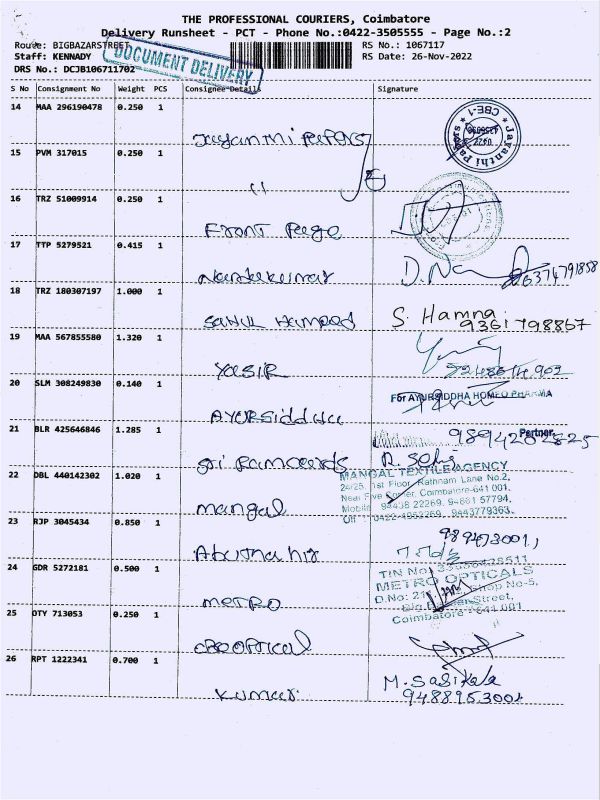 THE PROFESSIONAL COURIERS, Coimbatore
Delivery Runsheet - PCT - Phone No.:0422-3505555 - Page No.:2
Route: BIGBAZARSTREET RS No.: 1067117
Staff: KENNADY RS Date: 26-Nov-2022
DOCUMENT DELIVERY
DRS No.: DCJB106711702
S No Consignment No Weight PCS Consignee Details Signature
14 MAA 296190478 0.250 1
CBE-1
15 PVM 317015 0.250 1
"
16 TRZ 51009914 0.250 1
Front Page
17 TTP 5279521 0.415 1
Nandakumar D.Na 6374791858
18 TRZ 180307197 1.000 1
Sahul Hameed S. Hamna
9361798867
19 MAA 567855580 1.320 1
Yasir
20 SLM 308249830 0.140 1
For AYURSIDDHA HOMEO PHARMA
Ayursiddha
Partner
21 BLR 425646846 1.285 1
Sri Ramcards
22 DBL 440142302 1.020 1
MANGAL TEXTILE AGENCY
24/25, 1st Floor, Rathnam Lane No.2,
Near Five Corner, Coimbatore-641 001.
Mobile 94438 22269, 94861 57794,
Off : 0422-4952269, 9443779363.
Mangal
23 RJP 3045434 0.850 1
Abuthahir
24 GDR 5272181 0.500 1
TIN No.
METRO OPTICALS
D.No: 21 Shop No-5,
Street,
Coimbatore - 641 001
Metro
25 OTY 713053 0.250 1
CBE Optical
26 RPT 1222341 0.700 1
Kumar M. Sasikala
9488953001